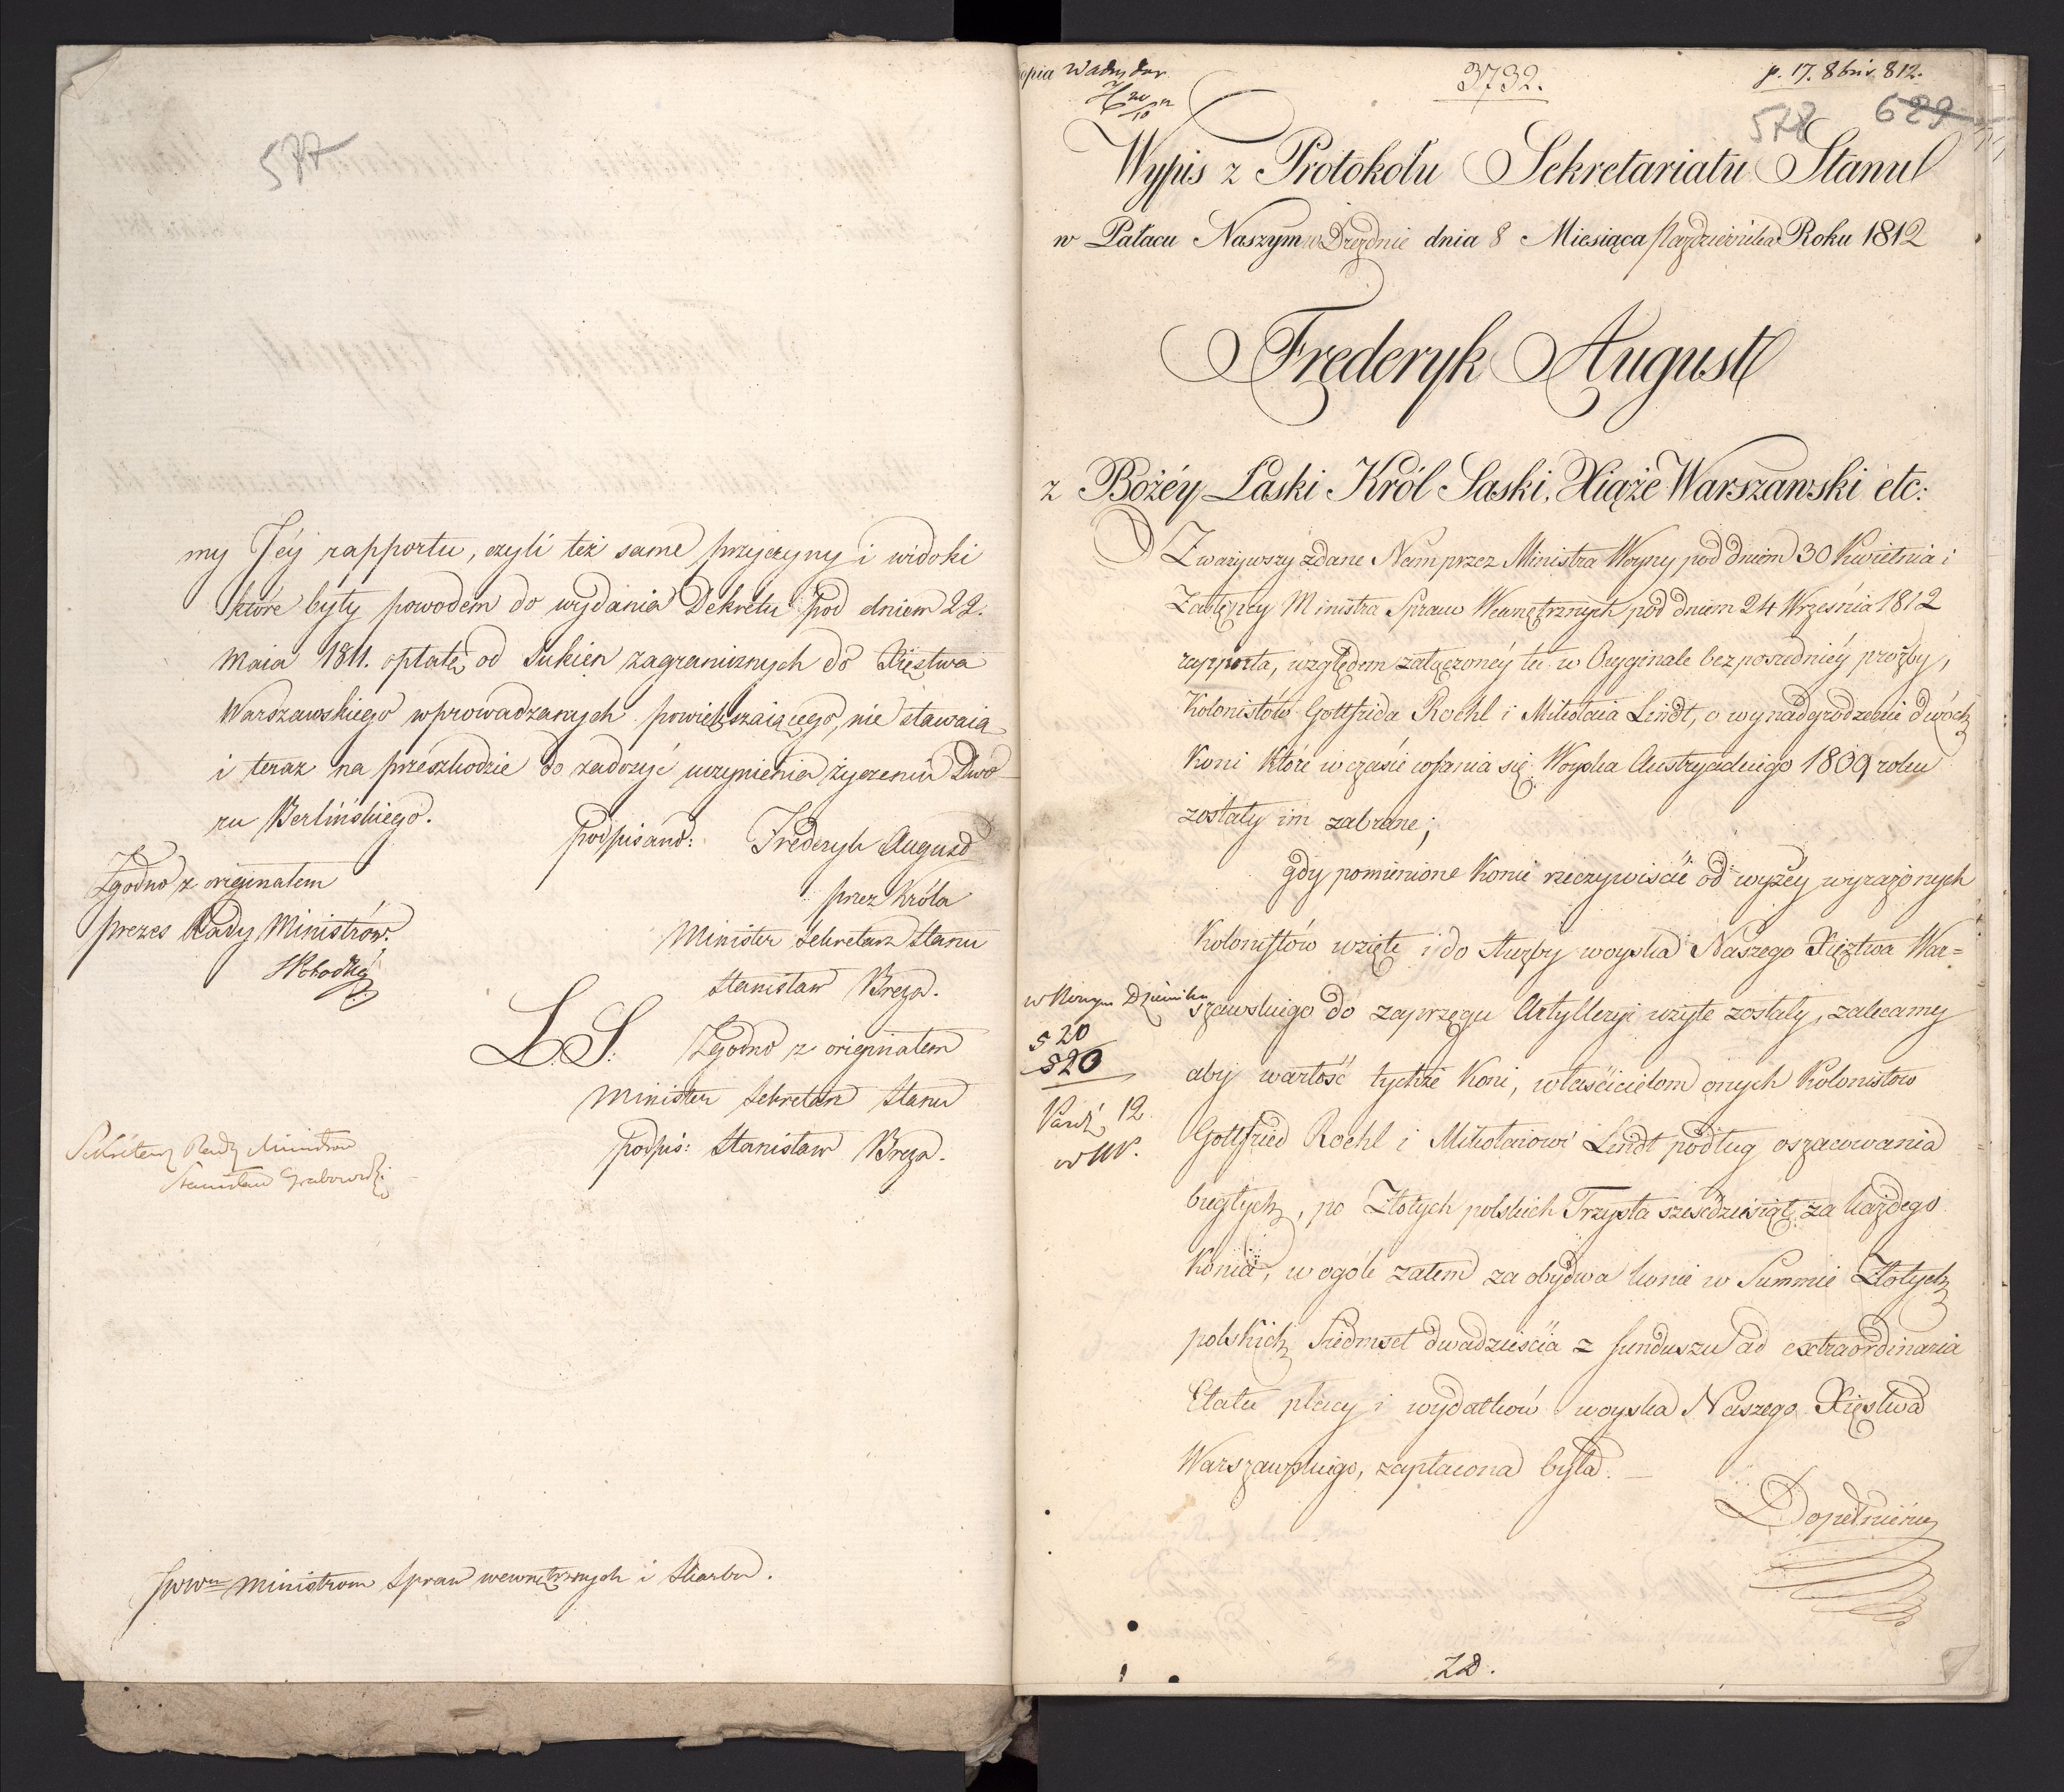 577
my Jéy rapportu, czyli też same przyczyny i widoki
które były powodem do wydania Dekretu pod dniem 22.
Maia 1811. opłatę od Sukien zagranicznych do Xięstwa
Warszawskiego wprowadzanych powiększaiącego, nie stawaią
i teraz na przeszkodzie do zadosyć uczynienia życzeniu Dwo
ru Berlińskiego.
podpisano: Frederyk August
przez Króla
Minister Sekretarz Stanu
Stanisław Breza.
Zgodno z originałem
prezes Rady Ministrów.
L. S. Zgodno z originałem
Minister Sekretarz Stanu
podpis: Stanisław Breza.
Sekretarz Rady Ministrów
Stanisław Grabowski
Ministrom Spraw wewnętrznych i Skarbu.
3732.
p. 17. 8bris. 812.
578 629
Wypis z Protokołu Sekretariatu Stanu
w Pałacu Naszym w Dreźnie dnia 8 Miesiąca Października Roku 1812
Frederyk August
z Bożéy Łaski Król Saski, Xiąże Warszawski etc:
Zważywszy zdane Nam przez Ministra Woyny pod dniem 30 Kwietnia i
Zastępcy Ministra Spraw Wewnętrznych pod dniem 24 Września 1812
rapporta, względem załączonéy tu w Oryginale bezpośredniéy prozby,
Kolonistów Gottfrida Roehl i Mikołaia Lindt, o wynadgrodzenie dwóch
Koni które w czasie cofania się Woyska Austryackiego 1809 roku
zostały im zabrane;
gdy pomienione Konie rzeczywiście od wyżéy wyrażonych
Kolonistów wzięte i do służby woyska Naszego Xięztwa War=
szawskiego do zaprzęgu Artylleryi użyte zostały, zalecamy
aby wartość tychże Koni, właścicielom onych Kolonistow
Gottfried Roehl i Mikołaiowi Lindt podług oszacowania
biegłych, po Złotych polskich Trzysta sześćdziesiąt za każdego
Konia, w ogóle zatem za obydwa konie w Summie Złotych
polskich Siedmset dwadzieścia z funduszu ad extraordinaria
Etatu płacy i wydatków woyska Naszego Xięstwa
Warszawskiego, zapłacona była.
w Nowym Dzienniku
§ 20
§ 20
Dopełnienie